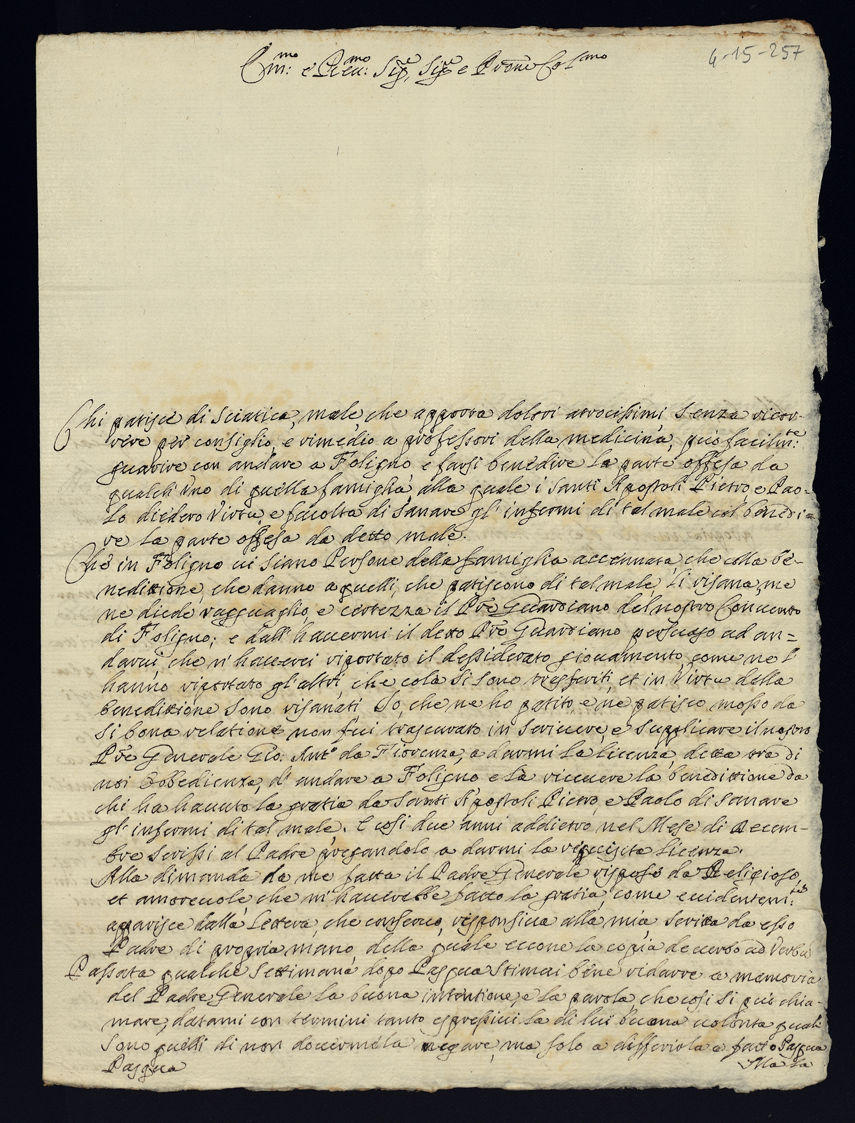 Em:mo e Reu:mo Sig.re, Sig.re e P.rone Col.mo
4-15-257
Chi patisce di Sciatica, male che apporta dolori atrocissimi Senza ricor-
rere per consiglio, e rimedio a professori della medicina, può facilm:te
guarire con andare a Foligno e farsi benedire la parte offesa da
qualch'uno di quella famiglia, alla quale i Santi Apostoli Pietro, e Pao-
lo diedero Virtu, e facoltà di Sanare gl'infermi di tal male col benedi=
re la parte offesa da detto male.
Che in Foligno ui Siano Persone della famiglia accennata, che colla be-
nedittione, che danno a quelli, che patiscono di tal male, li risana, me
ne diede ragguaglio, e certezza il P're Guardiano del nostro Conuento
di Foligno; e dall'hauermi il detto P're Guardiano persuaso ad an=
darui, che n'hauerei riportato il dessiderato giouamento, come ne l'
hanno riportato gl'altri, che colà Si Sono trasferiti, et in Virtu della
benedittione Sono risanati. Io, che ne ho patito, e ne patisco mosso da
Si bona relatione non fui trascurato in Scriuere, e Supplicare il nostro
P're Generale Gio: Ant.o da Fiorenza, a darmi la licenza detta tra di
noi Obbedienza, d'andare a Foligno e là riceuere la benedittione da
chi ha hauuto la gratia da Santi Apostoli Pietro, e Paolo di Sanare
gl'infermi di tal male. E cosi due anni addietro nel Mese di Decem-
bre Scrissi al Padre pregandolo a darmi la requisita licenza.
Alla dimanda da me fatta il Padre Generale rispose da Religioso,
et amoreuole che m'hauerebbe fatto la gratia, come euidentem:te
apparisce dalla Lettera, che conseruo, responsiua alla mia Scritta da esso
Padre di propria mano, della quale eccone la copia de uerbo ad Verbu
Passata qualche Settimana dopo Pasqua Stimai bene ridurre a memoria
del Padre Generale la buona intentione, e la parola che cosi Si può chia-
mare, datami con termini tanto espressiui la di lui buona uolontà quali
Sono quelli di non douermela negare, ma Solo a differirla a fatto Pasqua
Pasqua
Ma la